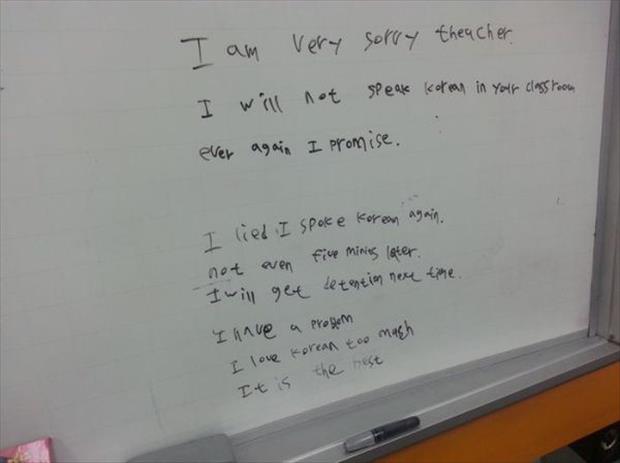 I am very sorry theacher.
I will not speak korean in your classroom
ever again I promise.
I lied I spoke korean again.
not even five mines later.
I will get detention next time.
I have a problem
I love korean too much
It is the best